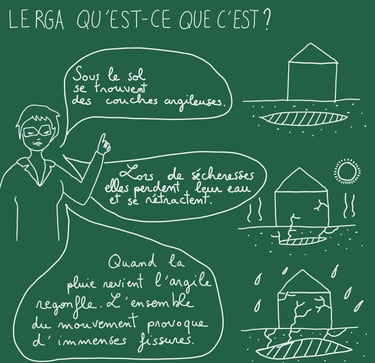 LE RGA QU'EST-CE QUE C'EST?
Sous le sol
se trouvent
des couches argileuses.
Lors de sécheresses
elles perdent leur eau
et se rétractent.
Quand la
pluie revient l'argile
regonfle. L'ensemble
du mouvement provoque
d'immenses fissures.